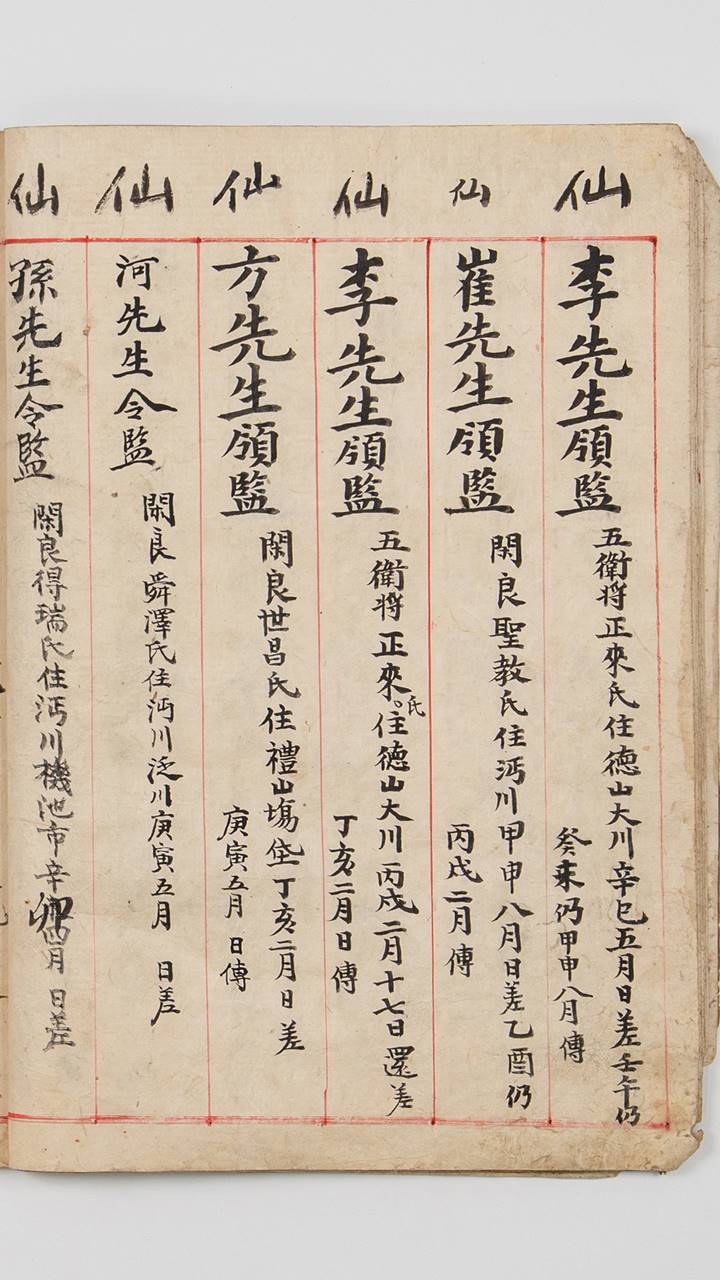 仙
李先生領監
五衛将正來氏住德山大川辛巳五月日差壬午仍
癸未仍甲申八月傳
仙
崔先生領監
閑良聖教氏住沔川甲申八月日差乙酉仍
丙戌二月傳
仙
李先生領監
五衛将正來氏住德山大川丙戌二月十七日還差
丁亥二月日傳
仙
方先生領監
閑良世昌氏住禮山塲垈丁亥二月日差
庚寅五月日傳
仙
河先生令監
閑良舜澤氏住沔川泛川庚寅五月日差
仙
孫先生令監
閑良得瑞氏住沔川機池市辛卯四月日差